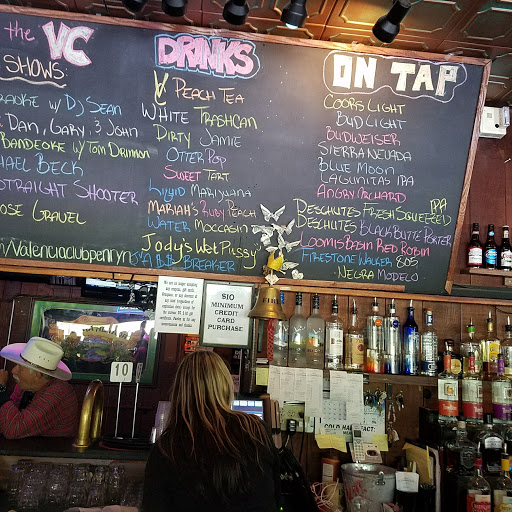 the VC
SHOWS:
KARAOKE W/ DJ SEAN
DAN, GARY, & JOHN
BANDEOKE W/ TOM DRINNON
MICHAEL BECK
STRAIGHT SHOOTER
ROSE GRAVEL
/Valenciaclubpenryn
DRINKS
PEACH TEA
WHITE TRASHCAN
DIRTY JAMIE
OTTER POP
SWEET TART
LIQUID MARIJUANA
MARIAH'S RUBY PEACH
WATER MOCCASIN
Jody's Wet Pussy
BUTT BREAKER
ON TAP
COORS LIGHT
BUD LIGHT
BUDWEISER
SIERRA NEVADA
BLUE MOON
LAGUNITAS IPA
ANGRY ORCHARD
DESCHUTES FRESH SQUEEZED IPA
DESCHUTES BLACK BUTTE PORTER
LOOMIS BASIN RED ROBIN
FIRESTONE WALKER 805
NEGRA MODELO
$10
MINIMUM
CREDIT
CARD
PURCHASE
10